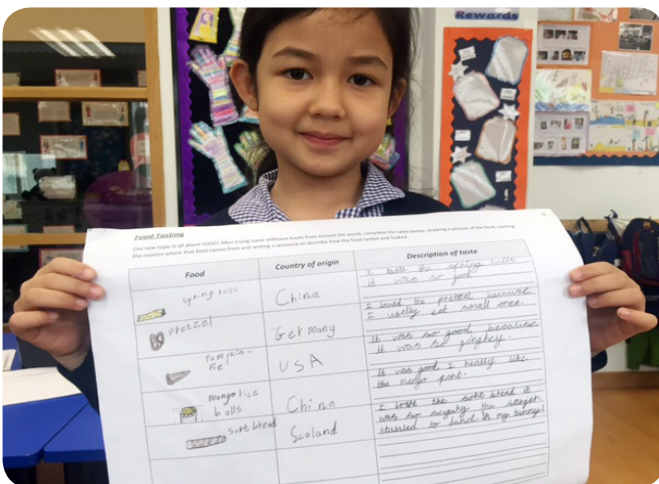 Rewards
Food Tasting
Our new topic is all about FOOD! After trying some different foods from around the world, complete the table below, drawing a picture of the food, naming
the country where that food comes from and writing a sentence to describe how the food tasted and looked.
Food
Country of origin
Description of taste
spring rolls
China
I the spring rolls
it was so good
pretzel
Germany
I loved the pretzel because
I usally eat small ones.
Pumpkin-
Pie
USA
It was so good because
it was so ginghey.
mango rice
balls
China
It was good I really like
the mango part.
sort bread
Scoland
I love the sort bread it
was so sugary the suger
started to land in my tummy!